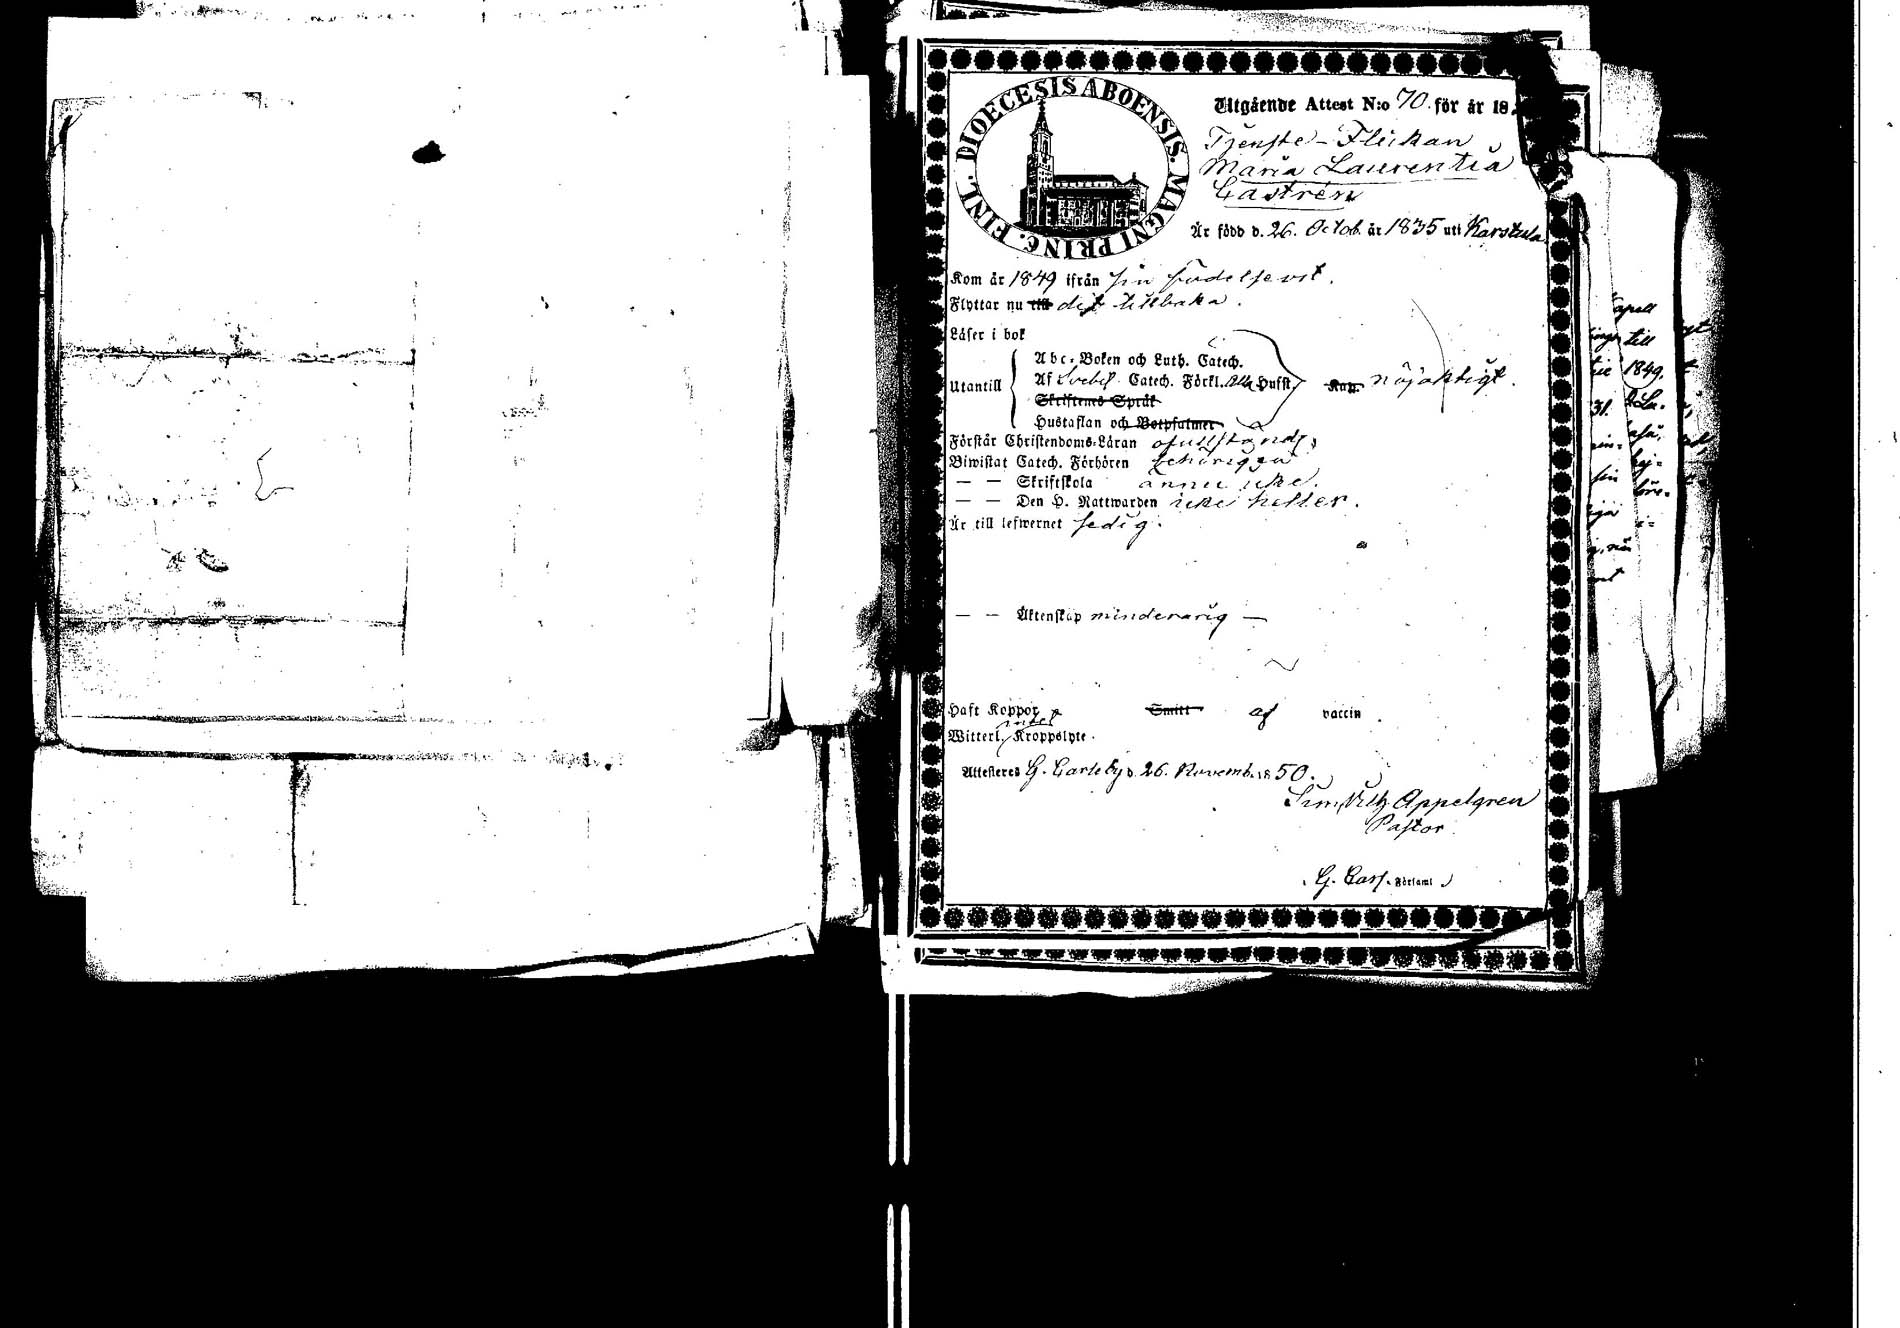 DIOECESIS ABOENSIS. MAGNI PRINC. FINL.
Utgående Attest N:o 70. för år 18
Tjenste-Flickan
Maria Laurentia
Castrén
Är född d. 26. Octob. år 1835 uti Karstula
Kom år 1849 ifrån sin födelseort.
Flyttar nu till dit tillbaka.
Läser i bok
Utantill
Abc-Boken och Luth. Catech.
Af Svebel. Catech. Förkl. Hufst.
Skriftenes Språk
Hustaflan och Botpsalmer
Kan nöjaktigt.
Förstår Christendoms-Läran ofullständ.
Biwistat Catech. Förhören behörigen
— — Skriftskola ännu icke.
— — Den H. Nattwarden icke heller.
Är till lefwernet sedig.
— — Äktenskap minderarig —
Haft Koppor Smitt af vaccin.
intet
Witterl. Kroppslyte.
Attesteres G. Carleby d. 26. Novemb. 1850.
Sim. Vilh. Appelgren
Pastor
G. Carl. Församl.
apell
till
1849.
31.